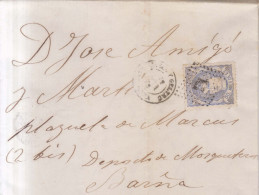 D. Jose Amigó
y Mart
plazuela de Marcus
(2 bis) Deposito de Mosqueteros
Barña